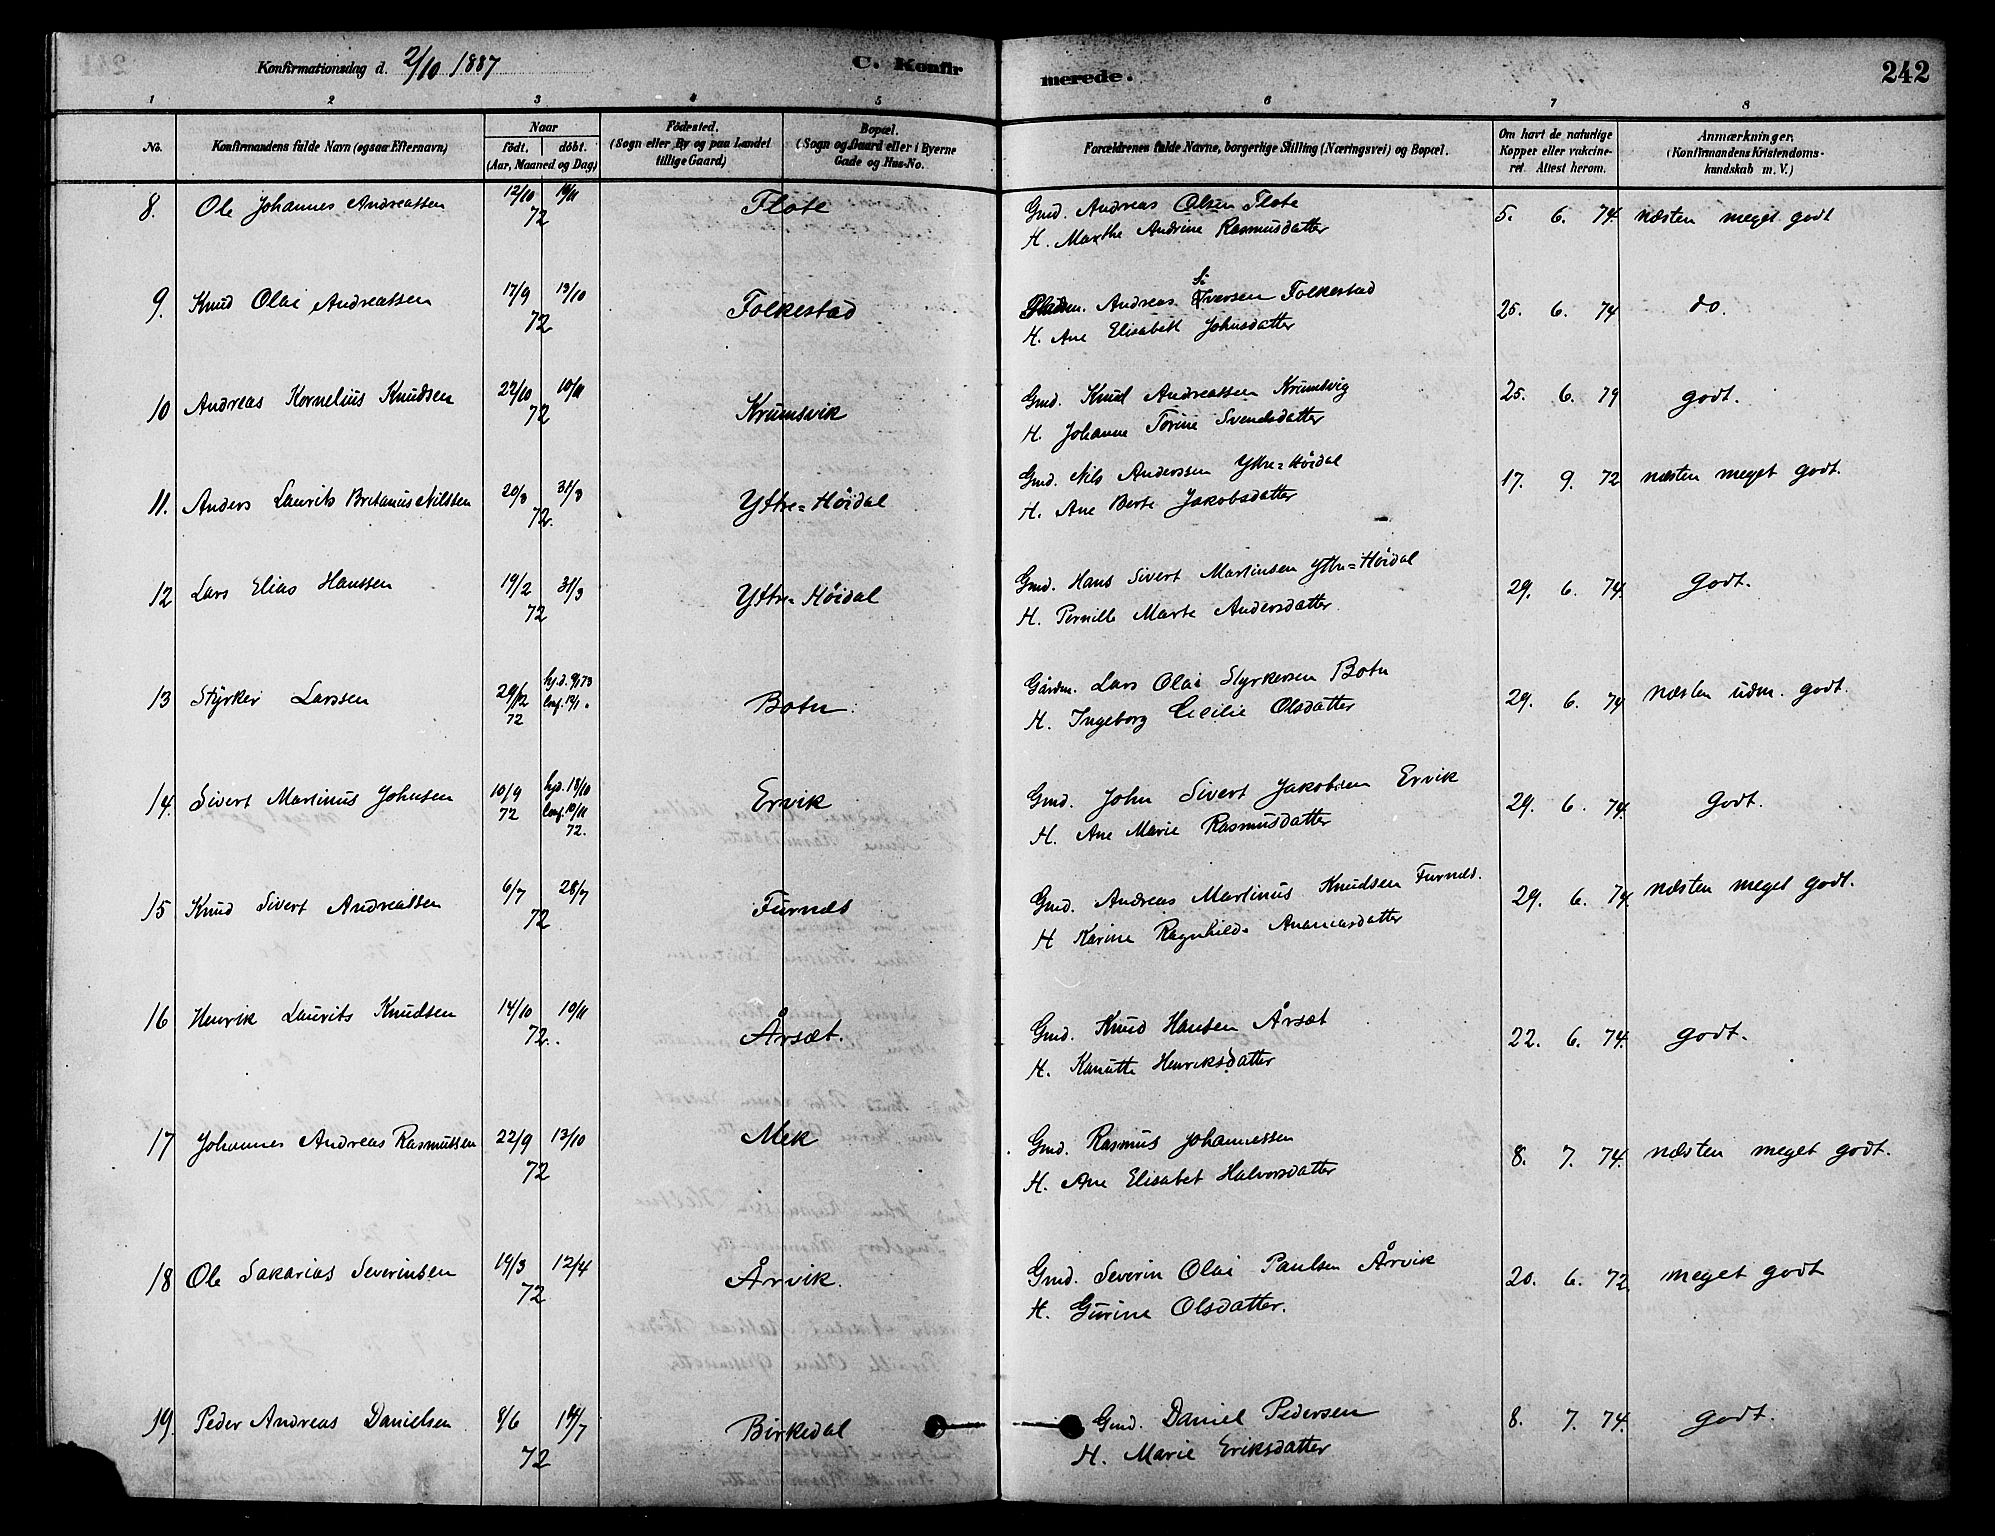 Konfirmationsdag d. 2/10 1887 C. Konfirmerede. 242
1 2 3 4 5 6 7 8
No. Konfirmandens fulde Navn (ogsaa Efternavn) Naar födt. döbt. (Aar, Maaned og Dag) Födested. (Sogn eller By og paa Landet tillige Gaard) Bopæl. (Sogn og Gaard eller i Byerne Gade og Hus-No. Forældrenes fulde Navne, borgerlige Stilling (Næringsvei) og Bopæl. Om havt de naturlige Kopper eller vakcineret. Attest herom. Anmærkninger. (Konfirmandens Kristendomskundskab m. V.)
8. Ole Johannes Andreassen 12/10 72 Flote Gmd. Andreas Olsen Flote 5. 6. 74. næsten meget godt
H. Marthe Andrine Rasmusdatter
9. Knud Olai Andreassen 17/9 13/10 72 Folkestad Pladsm. Andreas Iversen Folkestad 25. 6. 74 do.
H. Ane Elisabeth Johnsdatter
10 Andreas Kornelius Knudsen 27/10 10/11 72 Krumsvik Gmd. Knud Andreassen Krumsvig 25. 6. 79 godt.
H. Johanne Torine Svendsdatter
11. Anders Laurits Britanus Nilssen 20/3 31/3 72. Ytre=Höidal Gmd. Nils Anderssen Ytre=Höidal 17. 9. 72 næsten meget godt.
H. Ane Berte Jakobsdatter
12 Lars Elias Hanssen 19/2 31/3 72 Ytre=Höidal Gmd. Hans Sivert Martinsen Ytre=Höidal 29. 6. 74. Godt.
H. Pernille Marte Andersdatter
13 Styrker Larssen 29/12 72 hj.d. 9/1 73 conf. 19/1 Botn Gårdm. Lars Olai Styrkersen Botn 29. 6. 74 næsten udm. godt.
H. Ingeborg Cecilie Olsdatter
14. Sivert Martinus Johnsen 10/9 72 hjd. 18/10 conf. 10/11 72. Ervik Gmd. John Sivert Jakobsen Ervik 29. 6. 74. Godt.
H. Ane Marie Rasmusdatter
15 Knud Sivert Andreassen 6/7 28/7 72 Furnes Gmd. Andreas Martinus Knudsen Furnes. 29. 6. 74. næsten meget godt.
H Karine Ragnhilde Ananiasdatter
16 Henrik Laurits Knudsen 14/10 10/11 72. Årsæt. Gmd. Knud Hansen Årsæt 22. 6. 74. godt.
H. Kanutte Henriksdatter
17 Johannes Andreas Rasmussen 22/9 13/10 72 Mek Gmd. Rasmus Johannessen 8. 7. 74. næsten meget godt.
H. Ane Elisabet Halvorsdatter
18 Ole Sakarias Severinsen 14/3 12/4 72 Årvik. Gmd. Severin Olai Paulsen Årvik 20. 6. 72. meget godt
H. Gurine Olsdatter.
19. Peder Andreas Danielsen 9/6 14/7 72 Birkedal Gmd. Daniel Pedersen 8. 7. 74. godt.
H. Marie Eriksdatter